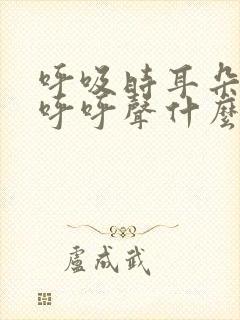 呼吸時耳朵
呼呼聲什麼
盧成武